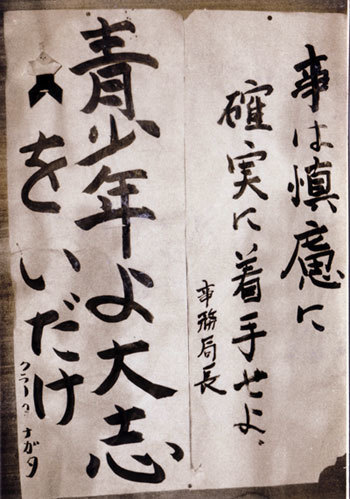 事は慎慮に
確実に着手せよ、
事務局長
青少年よ大志
をいだけ
クラーク